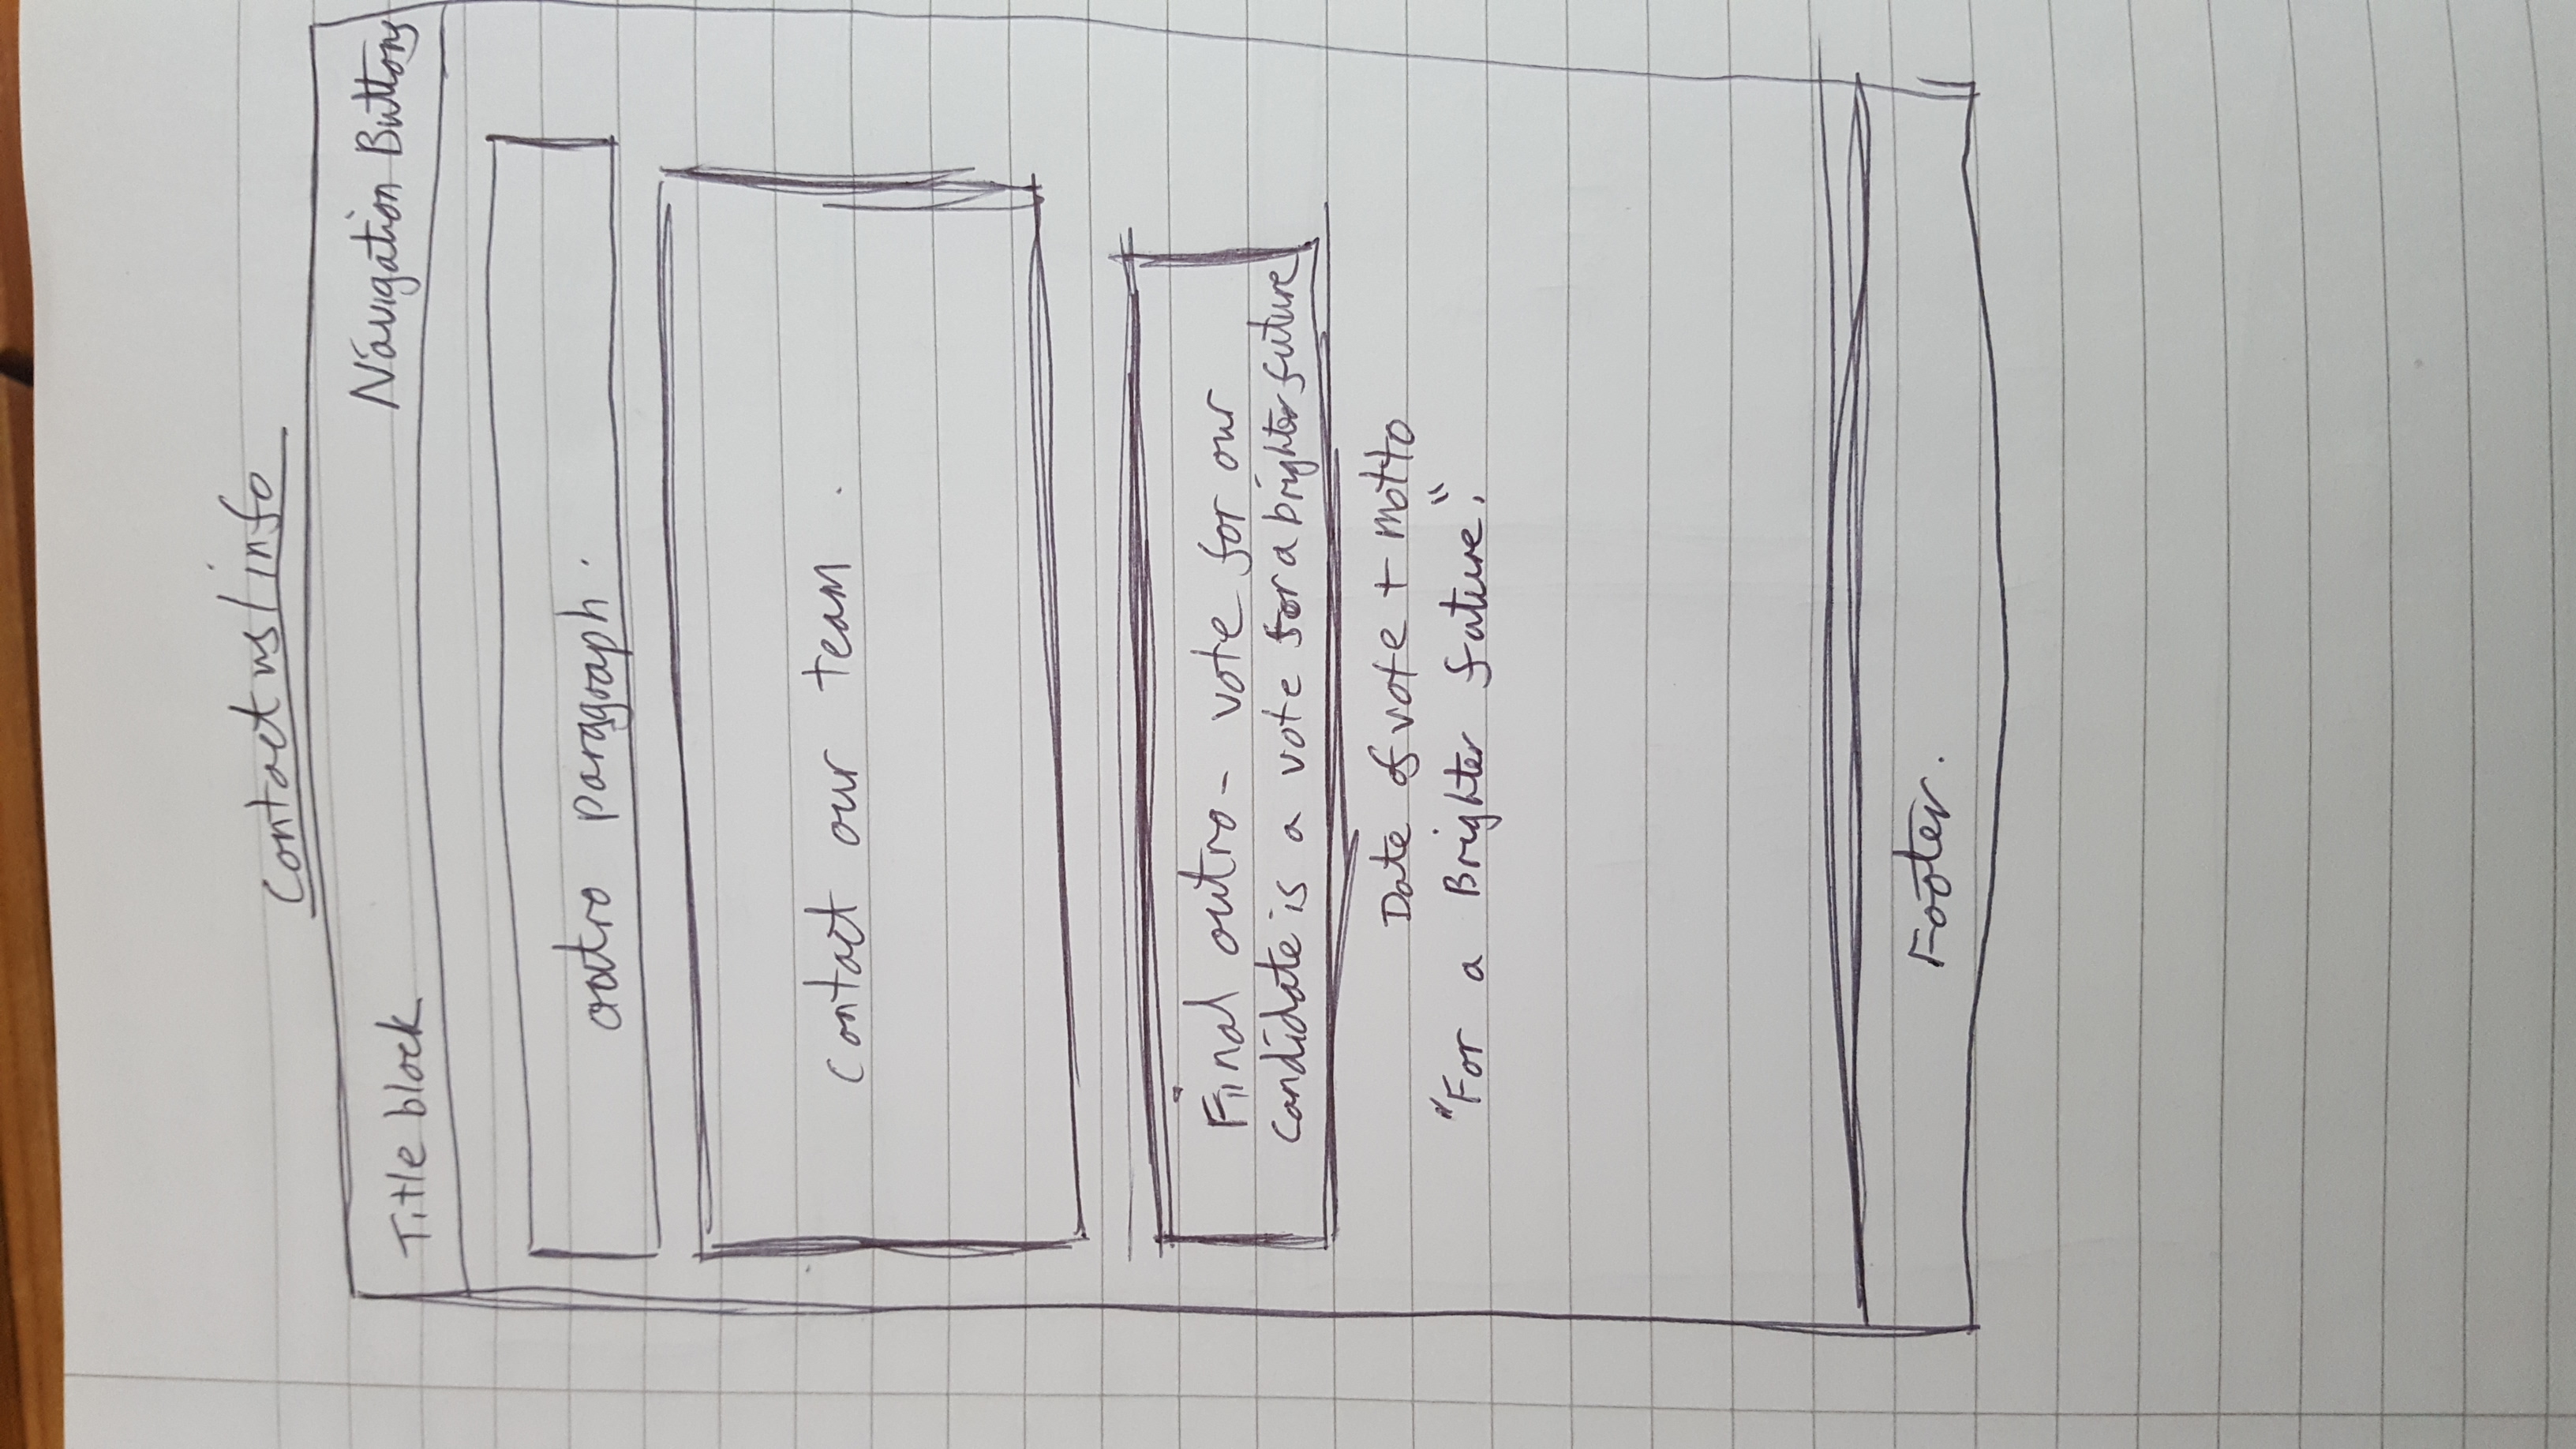 Contact us/info
Title block
Navigation Buttons
outro paragraph.
Contact our team.
Final outro - vote for our
candidate is a vote for a brighter future
Date of vote + motto
"For a Brighter future."
Footer.